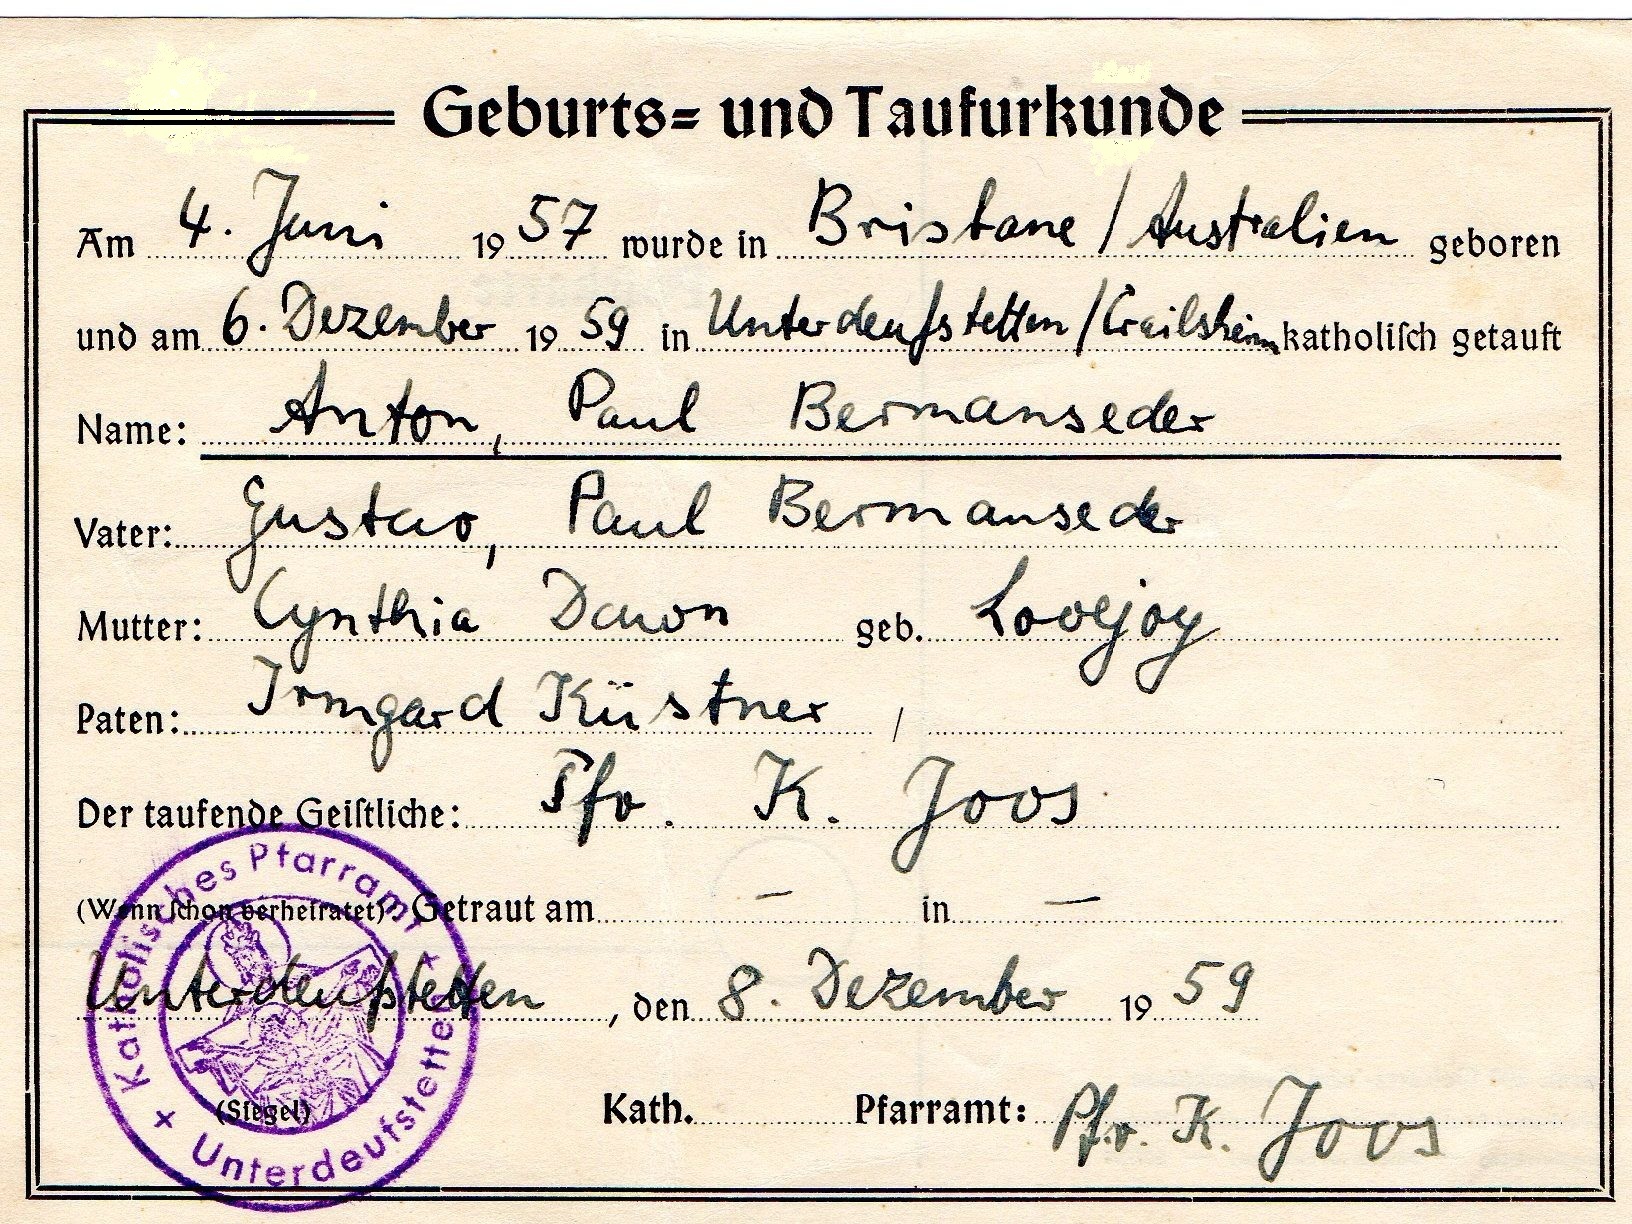 Geburts= und Taufurkunde
Am 4. Juni 1957 wurde in Brisbane / Australien geboren
und am 6. Dezember 1959 in Unterdeufstetten / Crailsheim katholisch getauft
Name: Anton, Paul Bermanseder
Vater: Gustav, Paul Bermanseder
Mutter: Cynthia Dawn geb. Lovejoy
Paten: Irmgard Küstner /
Der taufende Geistliche: Pfr. K. Joos
(Wenn schon verheiratet) Getraut am — in —
Unterdeufstetten, den 8. Dezember 1959
(Siegel) Kath. Pfarramt: Pfr. K. Joos
Katholisches Pfarramt
+ Unterdeufstetten +